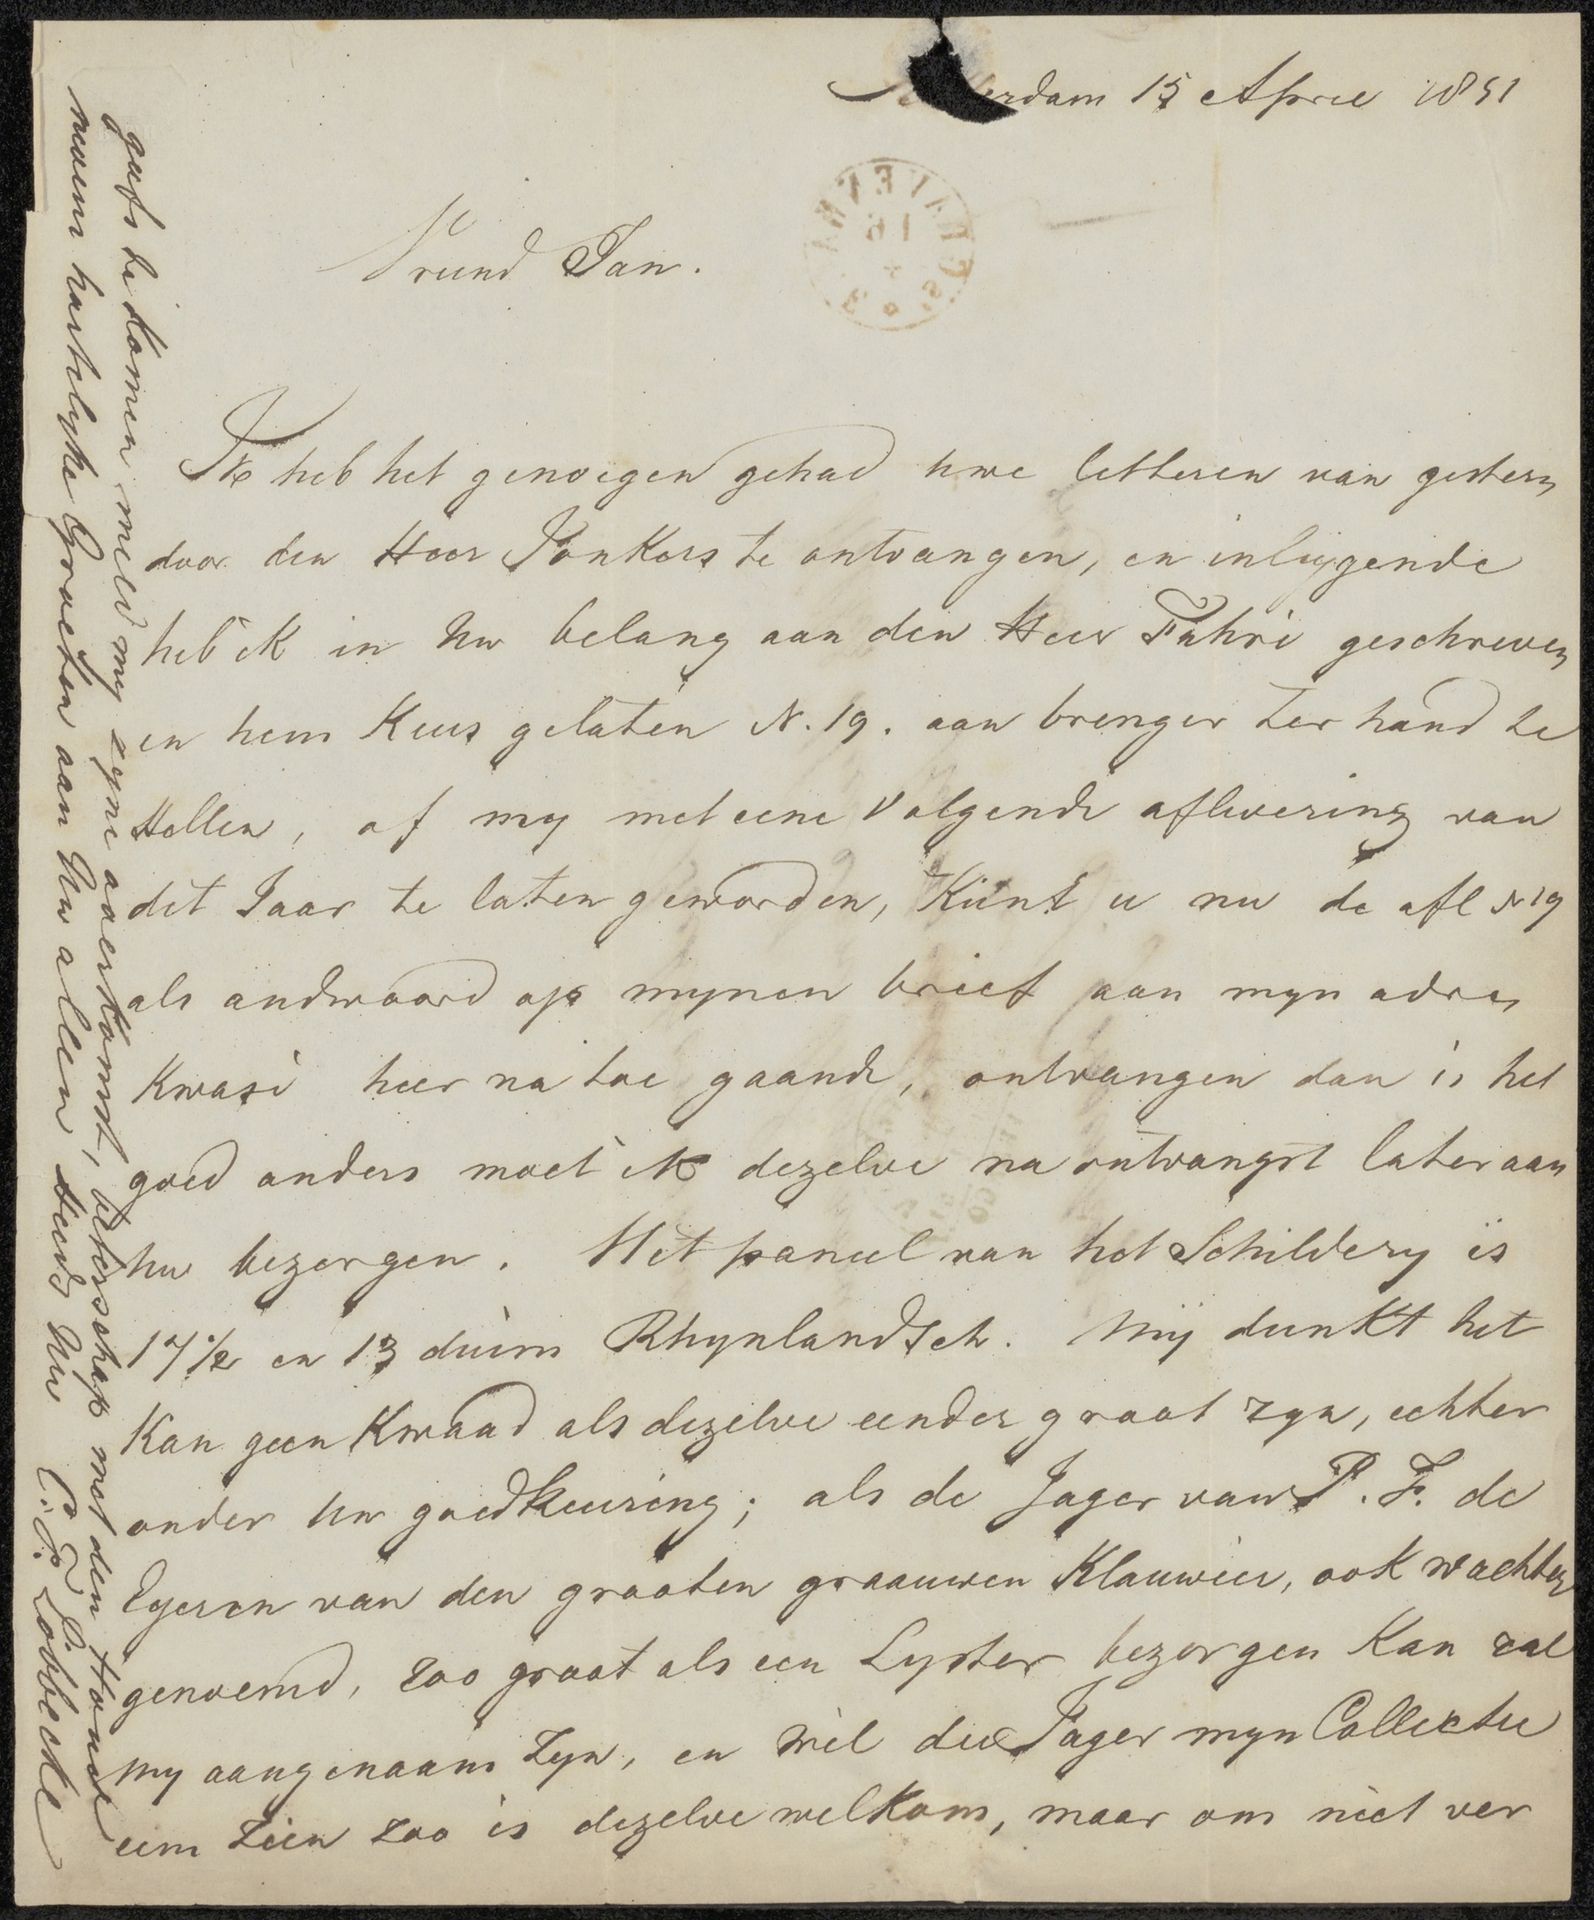 erdam 15 April 1851
Vrund Jan.
Ik heb het genoegen gehad uwe letteren van gistern
door den Heer Jonkers te ontvangen, en inliggende
heb ik in Uw belang aan den Heer Fuhri geschreven
en hem Keus gelaten N. 19. aan brenger ter hand te
stellen, of my met eene volgende aflevering van
dit Jaar te laten geworden, Kunt u nu de afl N 19
als andwoord op mynen brief aan myn adres
Kwasi heer na toe gaande, ontvangen dan is het
goed anders moet ik dezelve na ontvangst later aan
Uw bezorgen. Het paneel van het Schildery is
17 1/2 en 13 duim Rhynlandsch. Mij dunkt het
Kan geen Kwaad als dezelve eender groot zyn, echter
onder Uw goedkeuring; als de Jager van P. F. de
Eyeren van den grooten graauwen Klauwier, ook wachter
genoemd, zoo groot als een Lyster bezorgen Kan zal
my aangenaam zyn, en wil die Jager myn Collectie
eens zien zoo is dezelve welkom, maar om niet ver
gafs te komen meld my zyne aderkomst, beterschap met den Hond
neem hartelyke Groeten aan Uw allen steeds Uw
C. F. Lobbecke